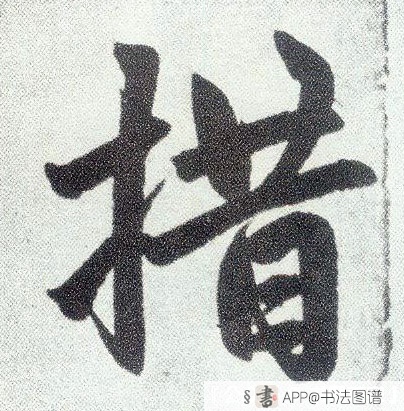 措
§書 APP@书法图谱